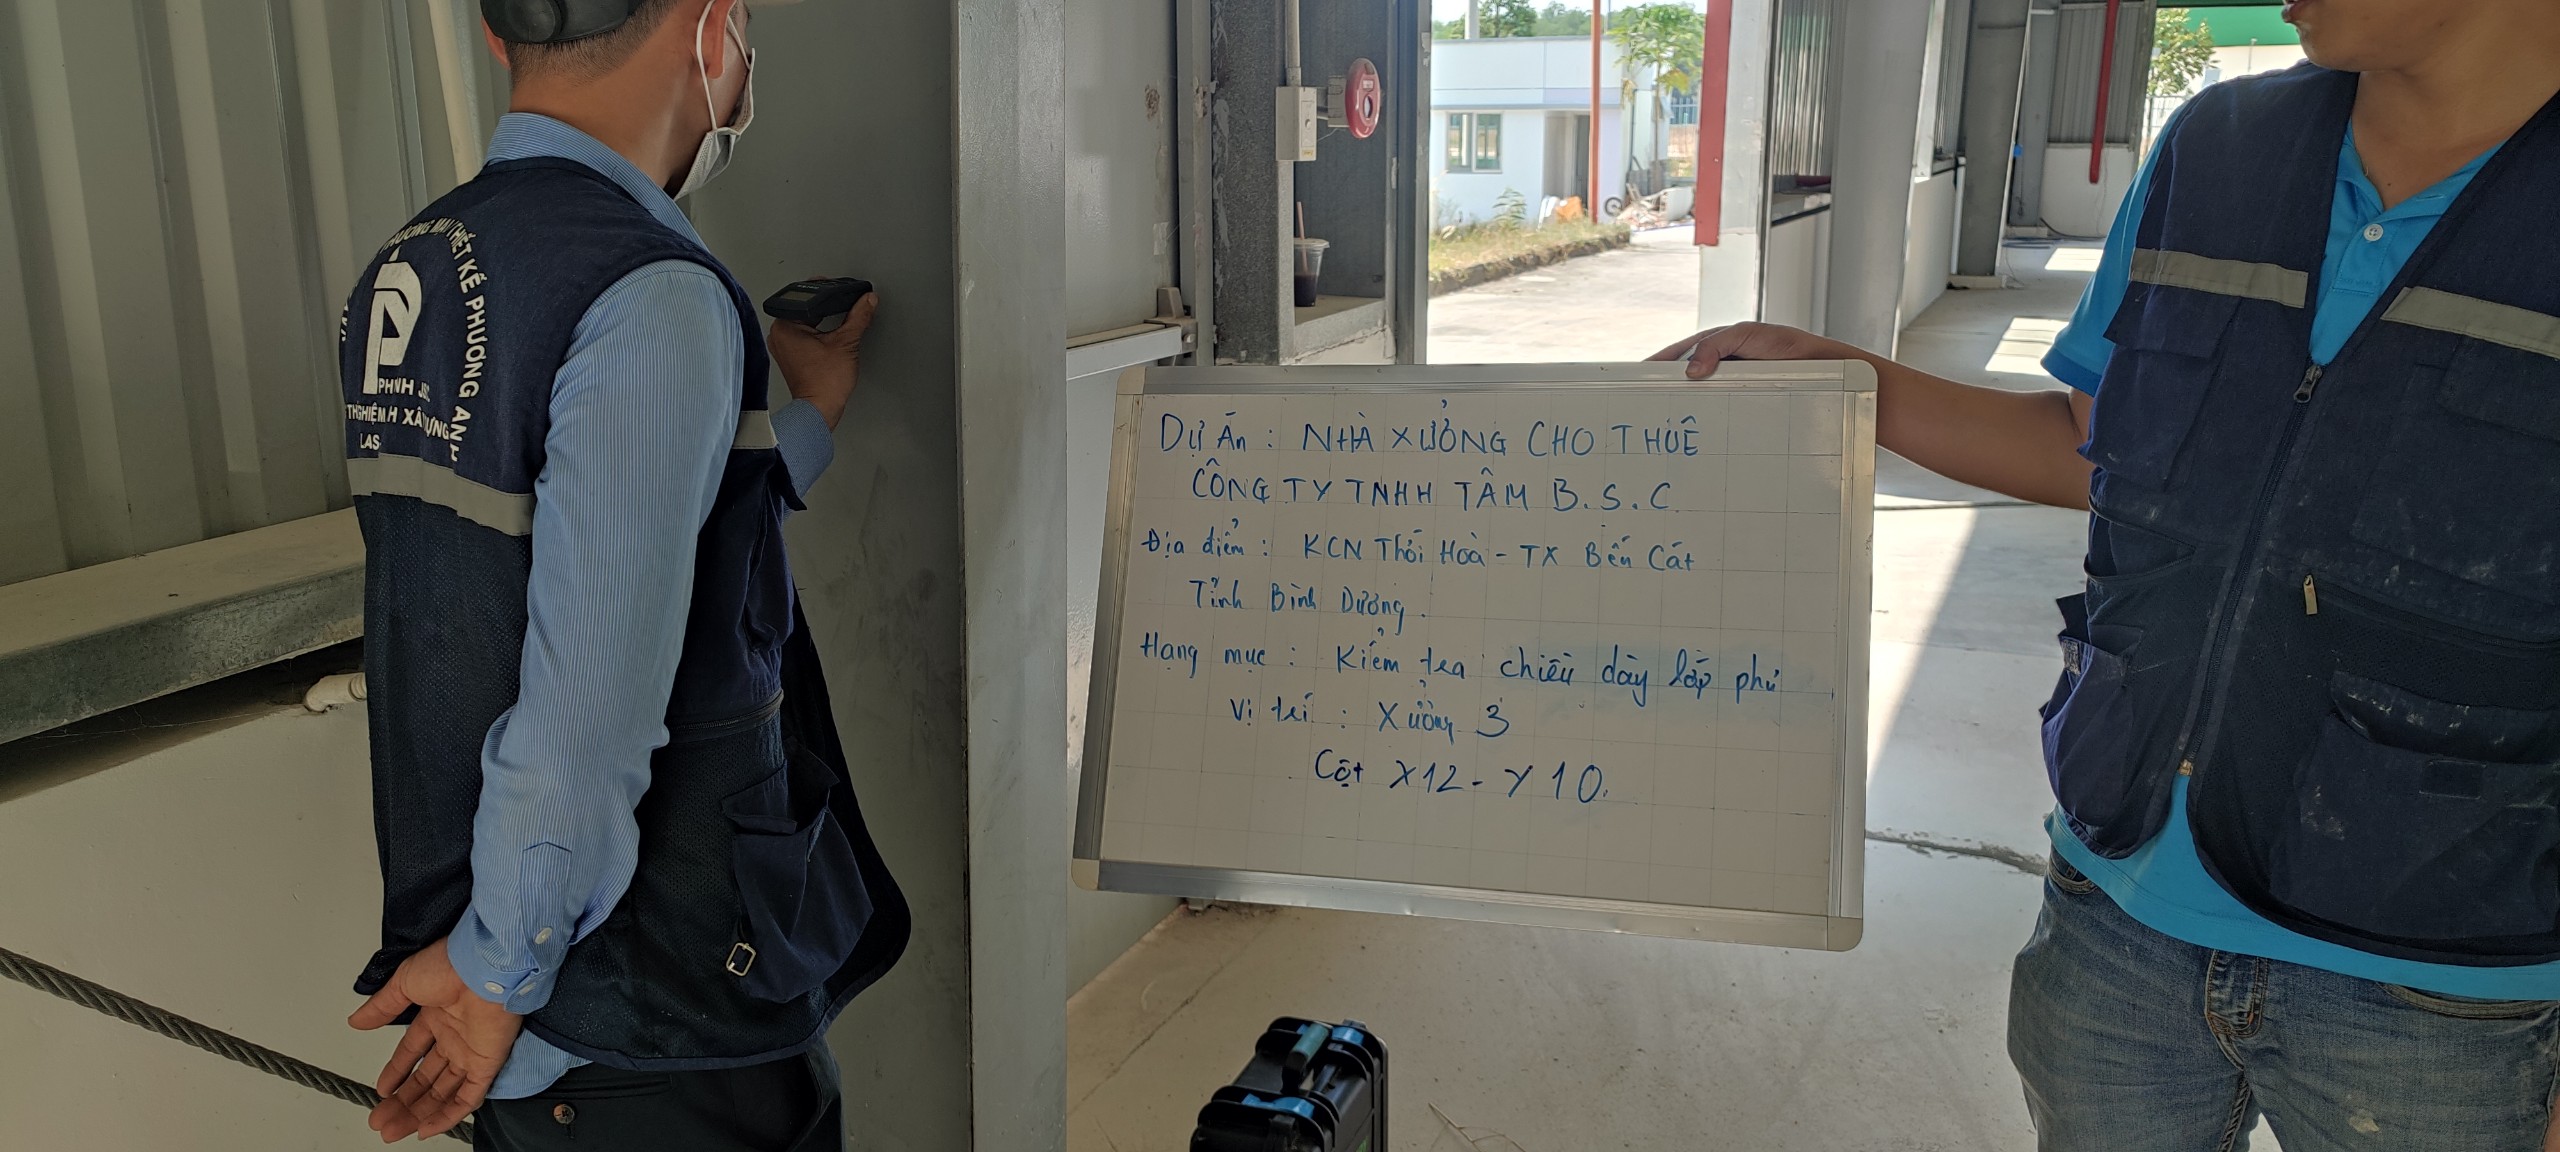 THƯƠNG MẠI THIẾT KẾ PHƯƠNG ANH
PH NH JS
TH GHIỆM H XÂY DỰNG
LAS
Dự Án : NHÀ XƯỞNG CHO THUÊ
CÔNG TY TNHH TÂM B.S.C
Địa điểm : KCN Thới Hoà - TX Bến Cát
Tỉnh Bình Dương.
Hạng mục : Kiểm tra chiều dày lớp phủ
Vị trí : Xưởng 3
Cột X12 - Y10.